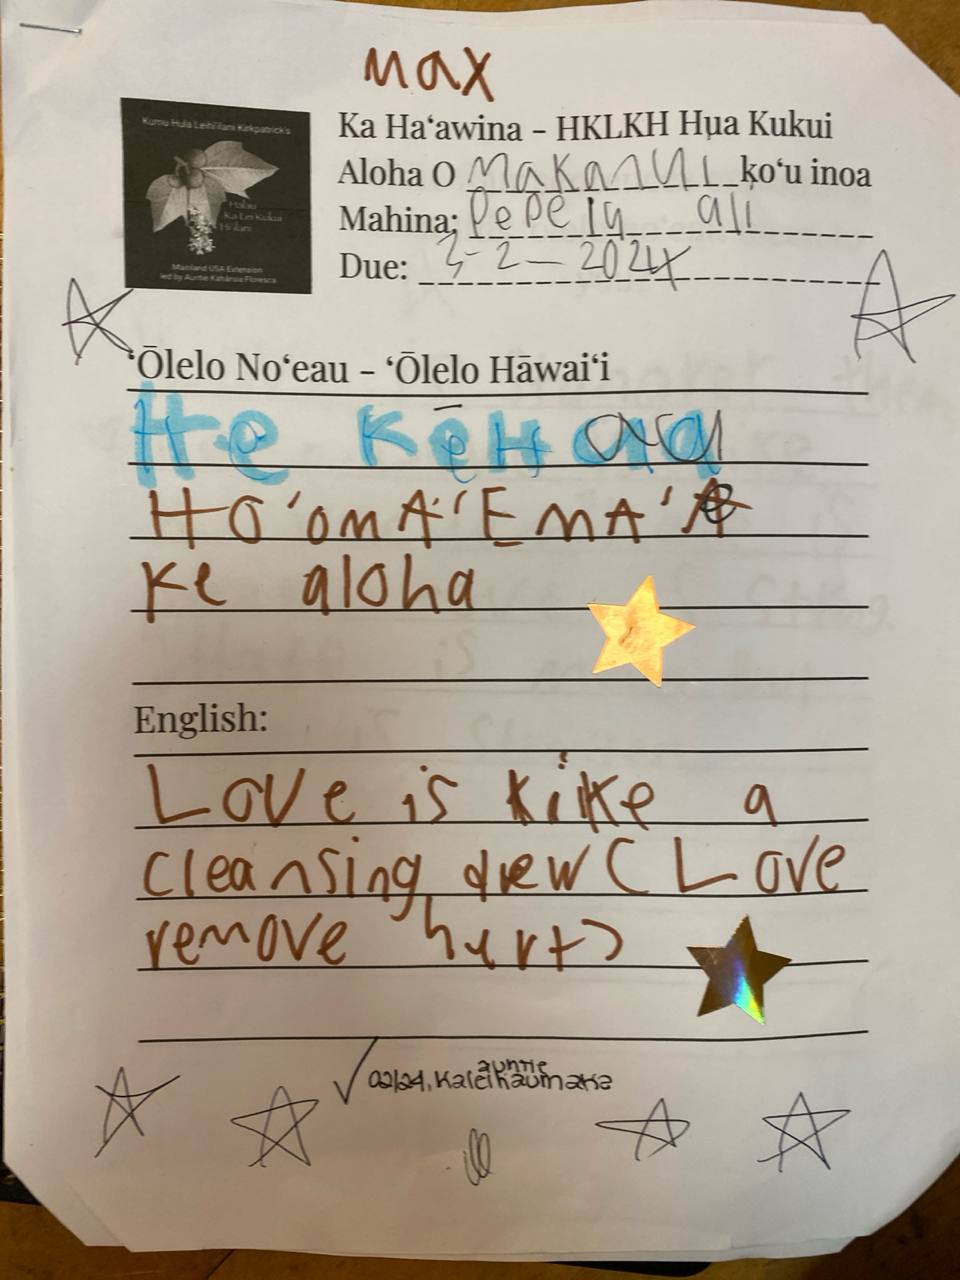 Max
Kumu Hula Leihi'ilani Kirkpatrick's
Halau
Ka Lei Kukui
Hi'ilani
Mainland USA Extension
led by Auntie Kahānaia Floresca
Ka Ha‘awina – HKLKH Hụa Kukui
Aloha O Makanui ḳo‘u inoa
Mahina: Pepelu ali
Due: 3-2-2024
‘Ōlelo No‘eau – ‘Ōlelo Hāwai‘i
He Kēhau
HO'OMA'EMA'E
ke aloha
English:
Love is like a
cleansing dew (Love
remove hurt)
✓ 02/24, auntie Kaleikaumaka